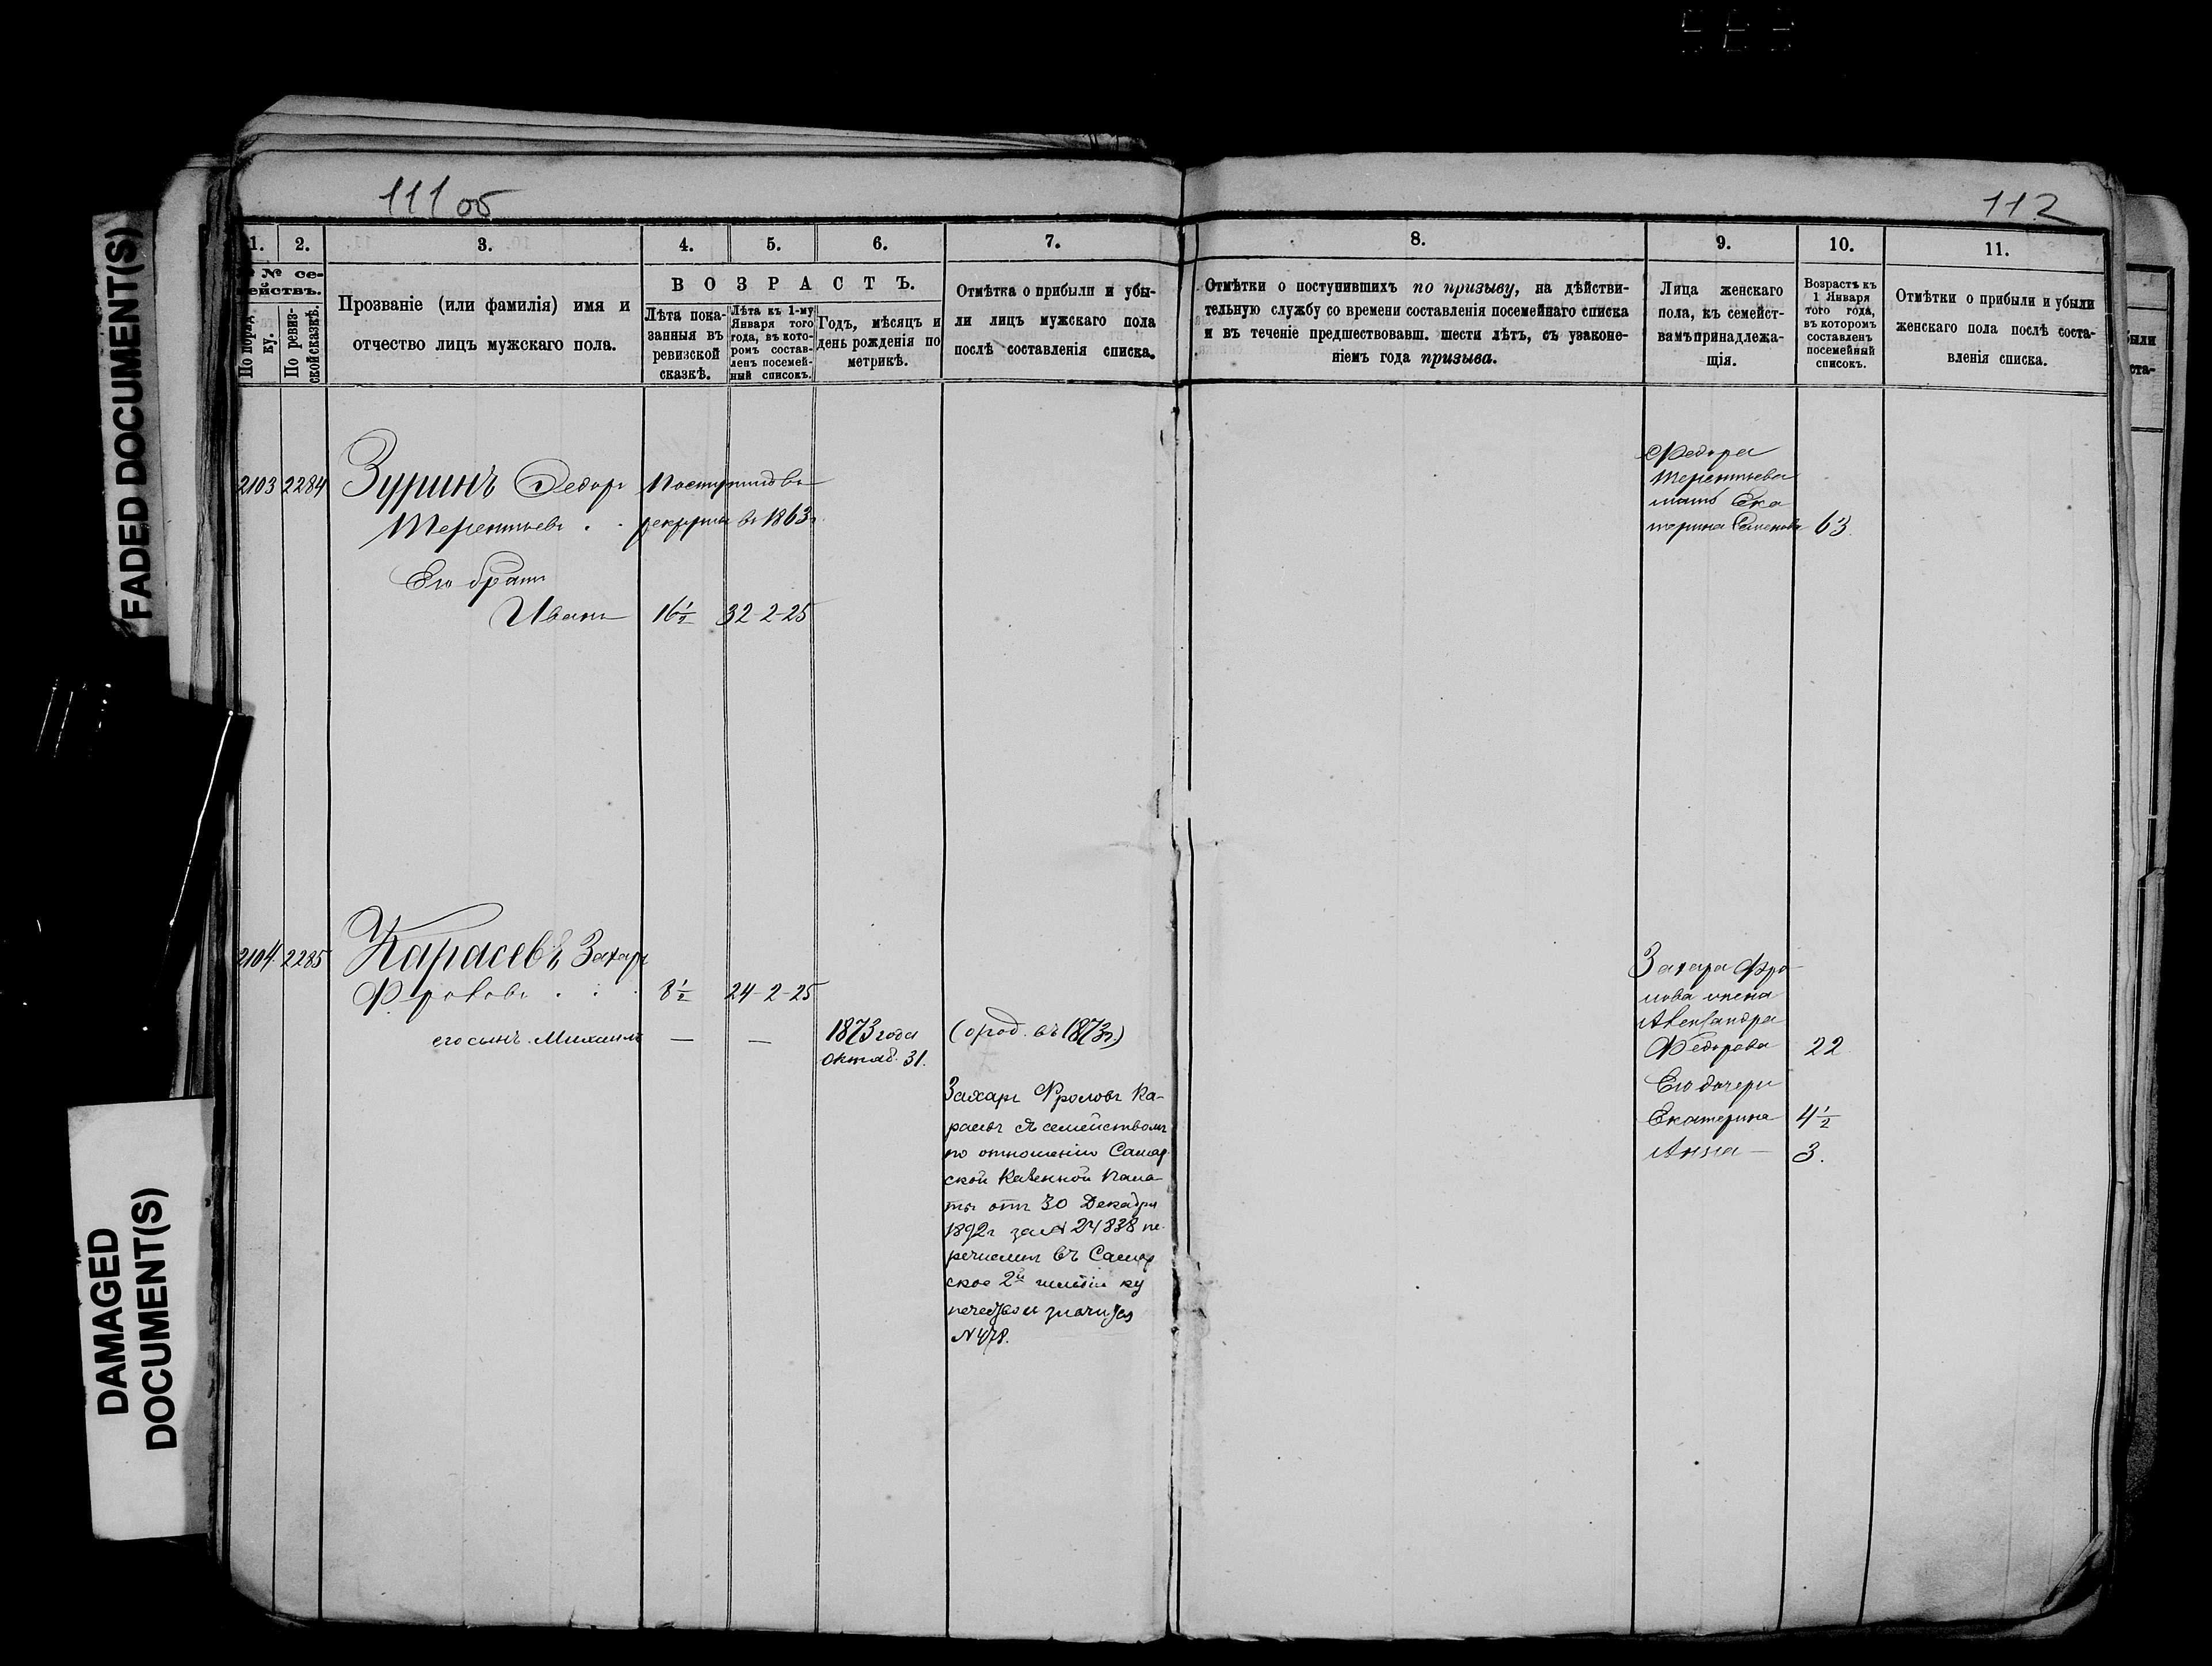 111 об
112
FADED DOCUMENT(S)
DAMAGED
DOCUMENT(S)
1.
2.
3.
4.
5.
6.
7.
8.
9.
10.
11.
№ се-
мействъ.
По поряд
ку.
По ревиз-
ской сказкѣ.
Прозваніе (или фамилія) имя и
отчество лицъ мужскаго пола.
ВОЗРАСТЪ.
Лѣта пока-
занныя въ
ревизской
сказкѣ.
Лѣта къ 1-му
Января того
года, въ кото-
ромъ состав-
ленъ посемей-
ный списокъ.
Годъ, мѣсяцъ и
день рожденія по
метрикѣ.
Отмѣтка о прибыли и убы-
ли лицъ мужскаго пола
послѣ составленія списка.
Отмѣтки о поступившихъ по призыву, на дѣйстви-
тельную службу со времени составленія посемейнаго списка
и въ теченіе предшествовавш. шести лѣтъ, съ узаконе-
ніемъ года призыва.
Лица женскаго
пола, къ семейст-
вамъ принадлежа-
щія.
Возрастъ къ
1 Января
того года,
въ которомъ
составленъ
посемейный
списокъ.
Отмѣтки о прибыли и убыли
женскаго пола послѣ соста-
вленія списка.
были
ста-
2103 2284 Зуринъ Федоръ Поступилъ въ
Терентьевъ . . рекруты въ 1863г
Его братъ
Иванъ 16½ 32-2-25
Федора
Терентьева
мать Ека
терина Семенова 63.
2104 2285 Карасевъ Захаръ
Фроловъ . . . 8½ 24-2-25
его сынъ Михаилъ — — 1873 года (ород. въ 1873г.)
октяб. 31.
Захаръ Фроловъ Ка-
расевъ съ семействомъ
по отношенію Самар
ской Казенной Пала-
ты отъ 30 Декабря
1892г за № 24838 пе-
речисленъ въ Самар
ское 2й гильдіи ку
печество и значится
№ 478.
Захара Фро-
лова жена
Александра
Федорова 22
Его дочери
Екатерина 4½
Анна — 3.